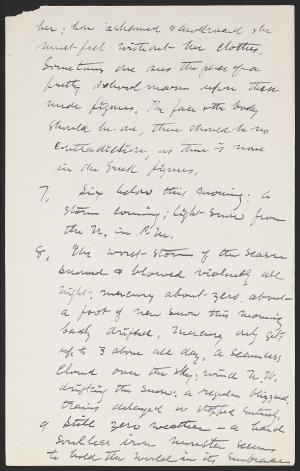 her; how ashamed & awkward she
must feel without her clothes.
Sometimes one sees the face of a
pretty school marm upon these
nude figures. The face & the body
should be one, there should be no
contradiction, as there is none
in the Greek figures.
7, Six below this morning: a
storm coming; light snow from
the N. in P.M.
8, The worst storm of the season
snowed & blowed violently all
night, mercury about zero, about
a foot of new snow this morning
badly drifted. Mercury only gets
up to 3 above all day, a seamless
cloud over the sky, wind N.W.
drifting the snow, a regular blizzard,
trains delayed or stopped entirely.
9 Still zero weather – a hard
soulless iron monster seems
to hold the world in its embraces